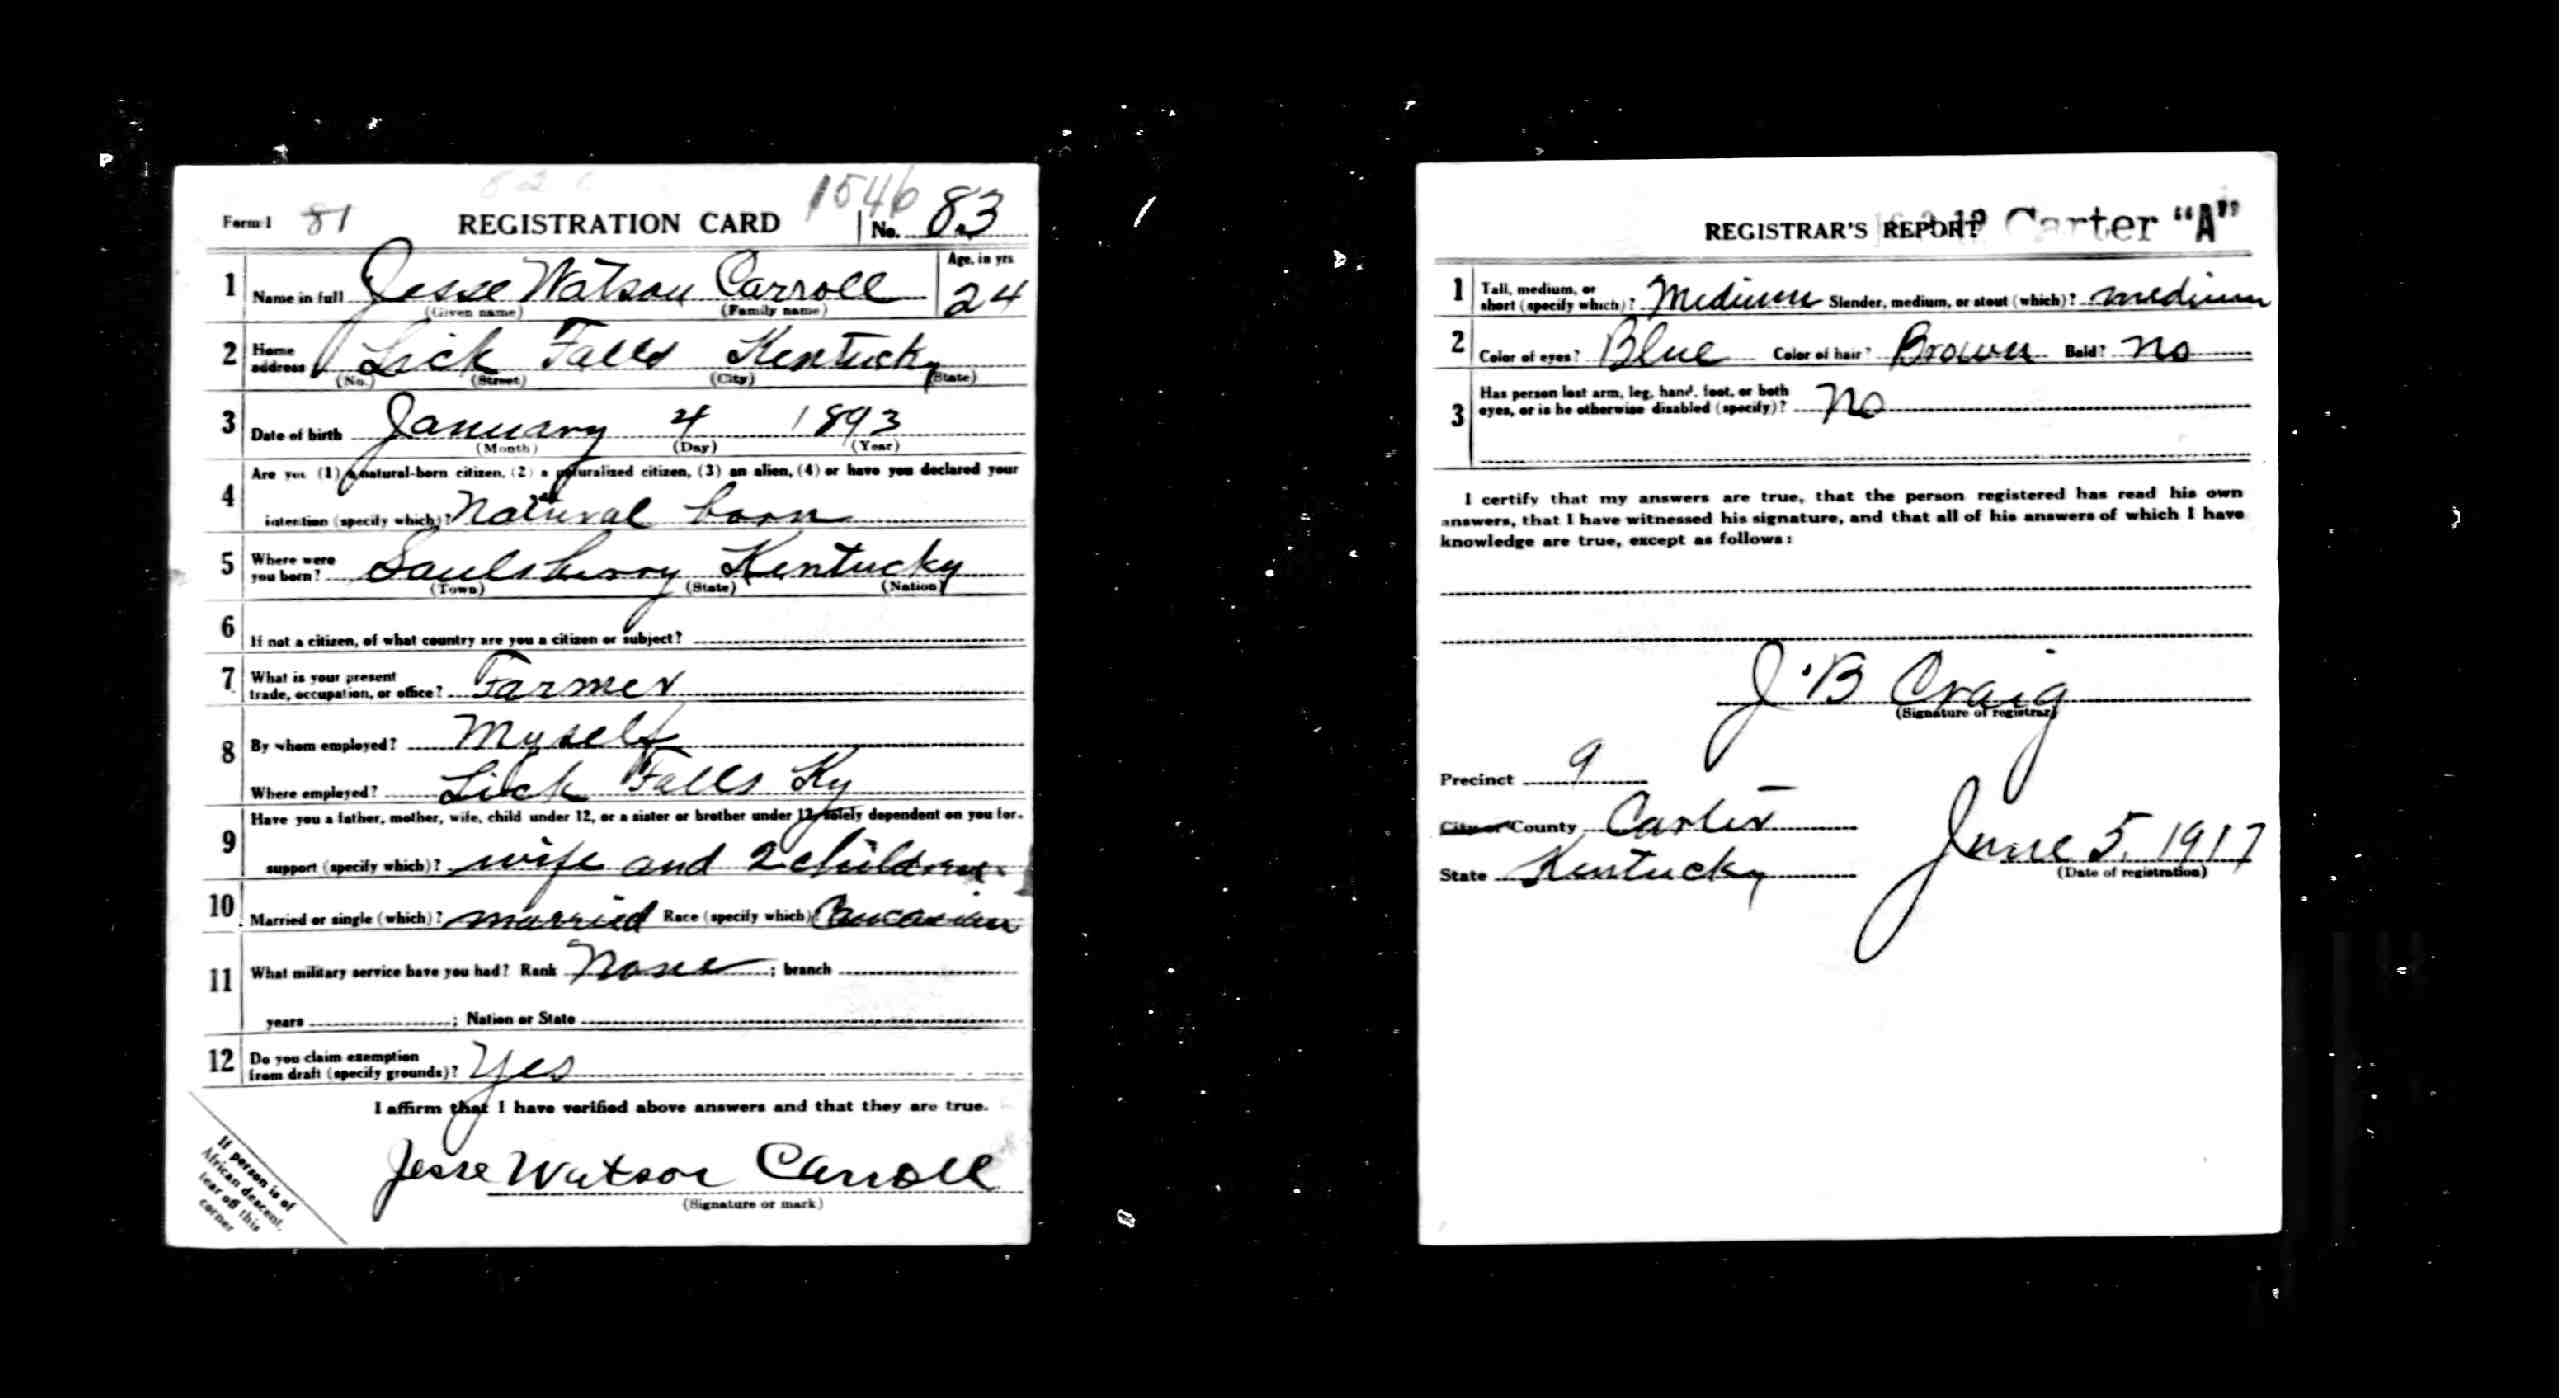 1546
Form 1 81 REGISTRATION CARD No. 83
1 Name in full Jesse Watson Carroll Age, in yrs 24
(Given name) (Family name)
2 Home address Lick Falls Kentucky
(No.) (Street) (City) (State)
3 Date of birth January 4 1893
(Month) (Day) (Year)
4 Are you (1) a natural-born citizen, (2) a naturalized citizen, (3) an alien, (4) or have you declared your
intention (specify which)? Natural born
5 Where were you born? Saulsberry Kentucky
(Town) (State) (Nation)
6 If not a citizen, of what country are you a citizen or subject?
7 What is your present
trade, occupation, or office? Farmer
8 By whom employed? Myself
Where employed? Lick Falls Ky
9 Have you a father, mother, wife, child under 12, or a sister or brother under 12, solely dependent on you for
support (specify which)? wife and 2 children
10 Married or single (which)? married Race (specify which)? Caucasian
11 What military service have you had? Rank None ; branch
years ; Nation or State
12 Do you claim exemption
from draft (specify grounds)? Yes
I affirm that I have verified above answers and that they are true.
Jesse Watson Carroll
(Signature or mark)
If person is of
African descent,
tear off this
corner
REGISTRAR'S REPORT Carter "A"
1 Tall, medium, or
short (specify which)? Medium Slender, medium, or stout (which)? medium
2 Color of eyes? Blue Color of hair? Brown Bald? No
3 Has person lost arm, leg, hand, foot, or both
eyes, or is he otherwise disabled (specify)? No
I certify that my answers are true, that the person registered has read his own
answers, that I have witnessed his signature, and that all of his answers of which I have
knowledge are true, except as follows:
J. B Craig
(Signature of registrar)
Precinct 9
City or County Carter
State Kentucky
June 5, 1917
(Date of registration)